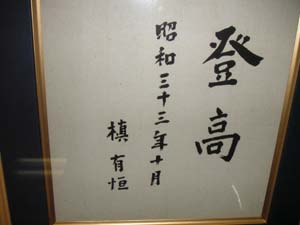 登高
昭和三十三年十月
槙有恒